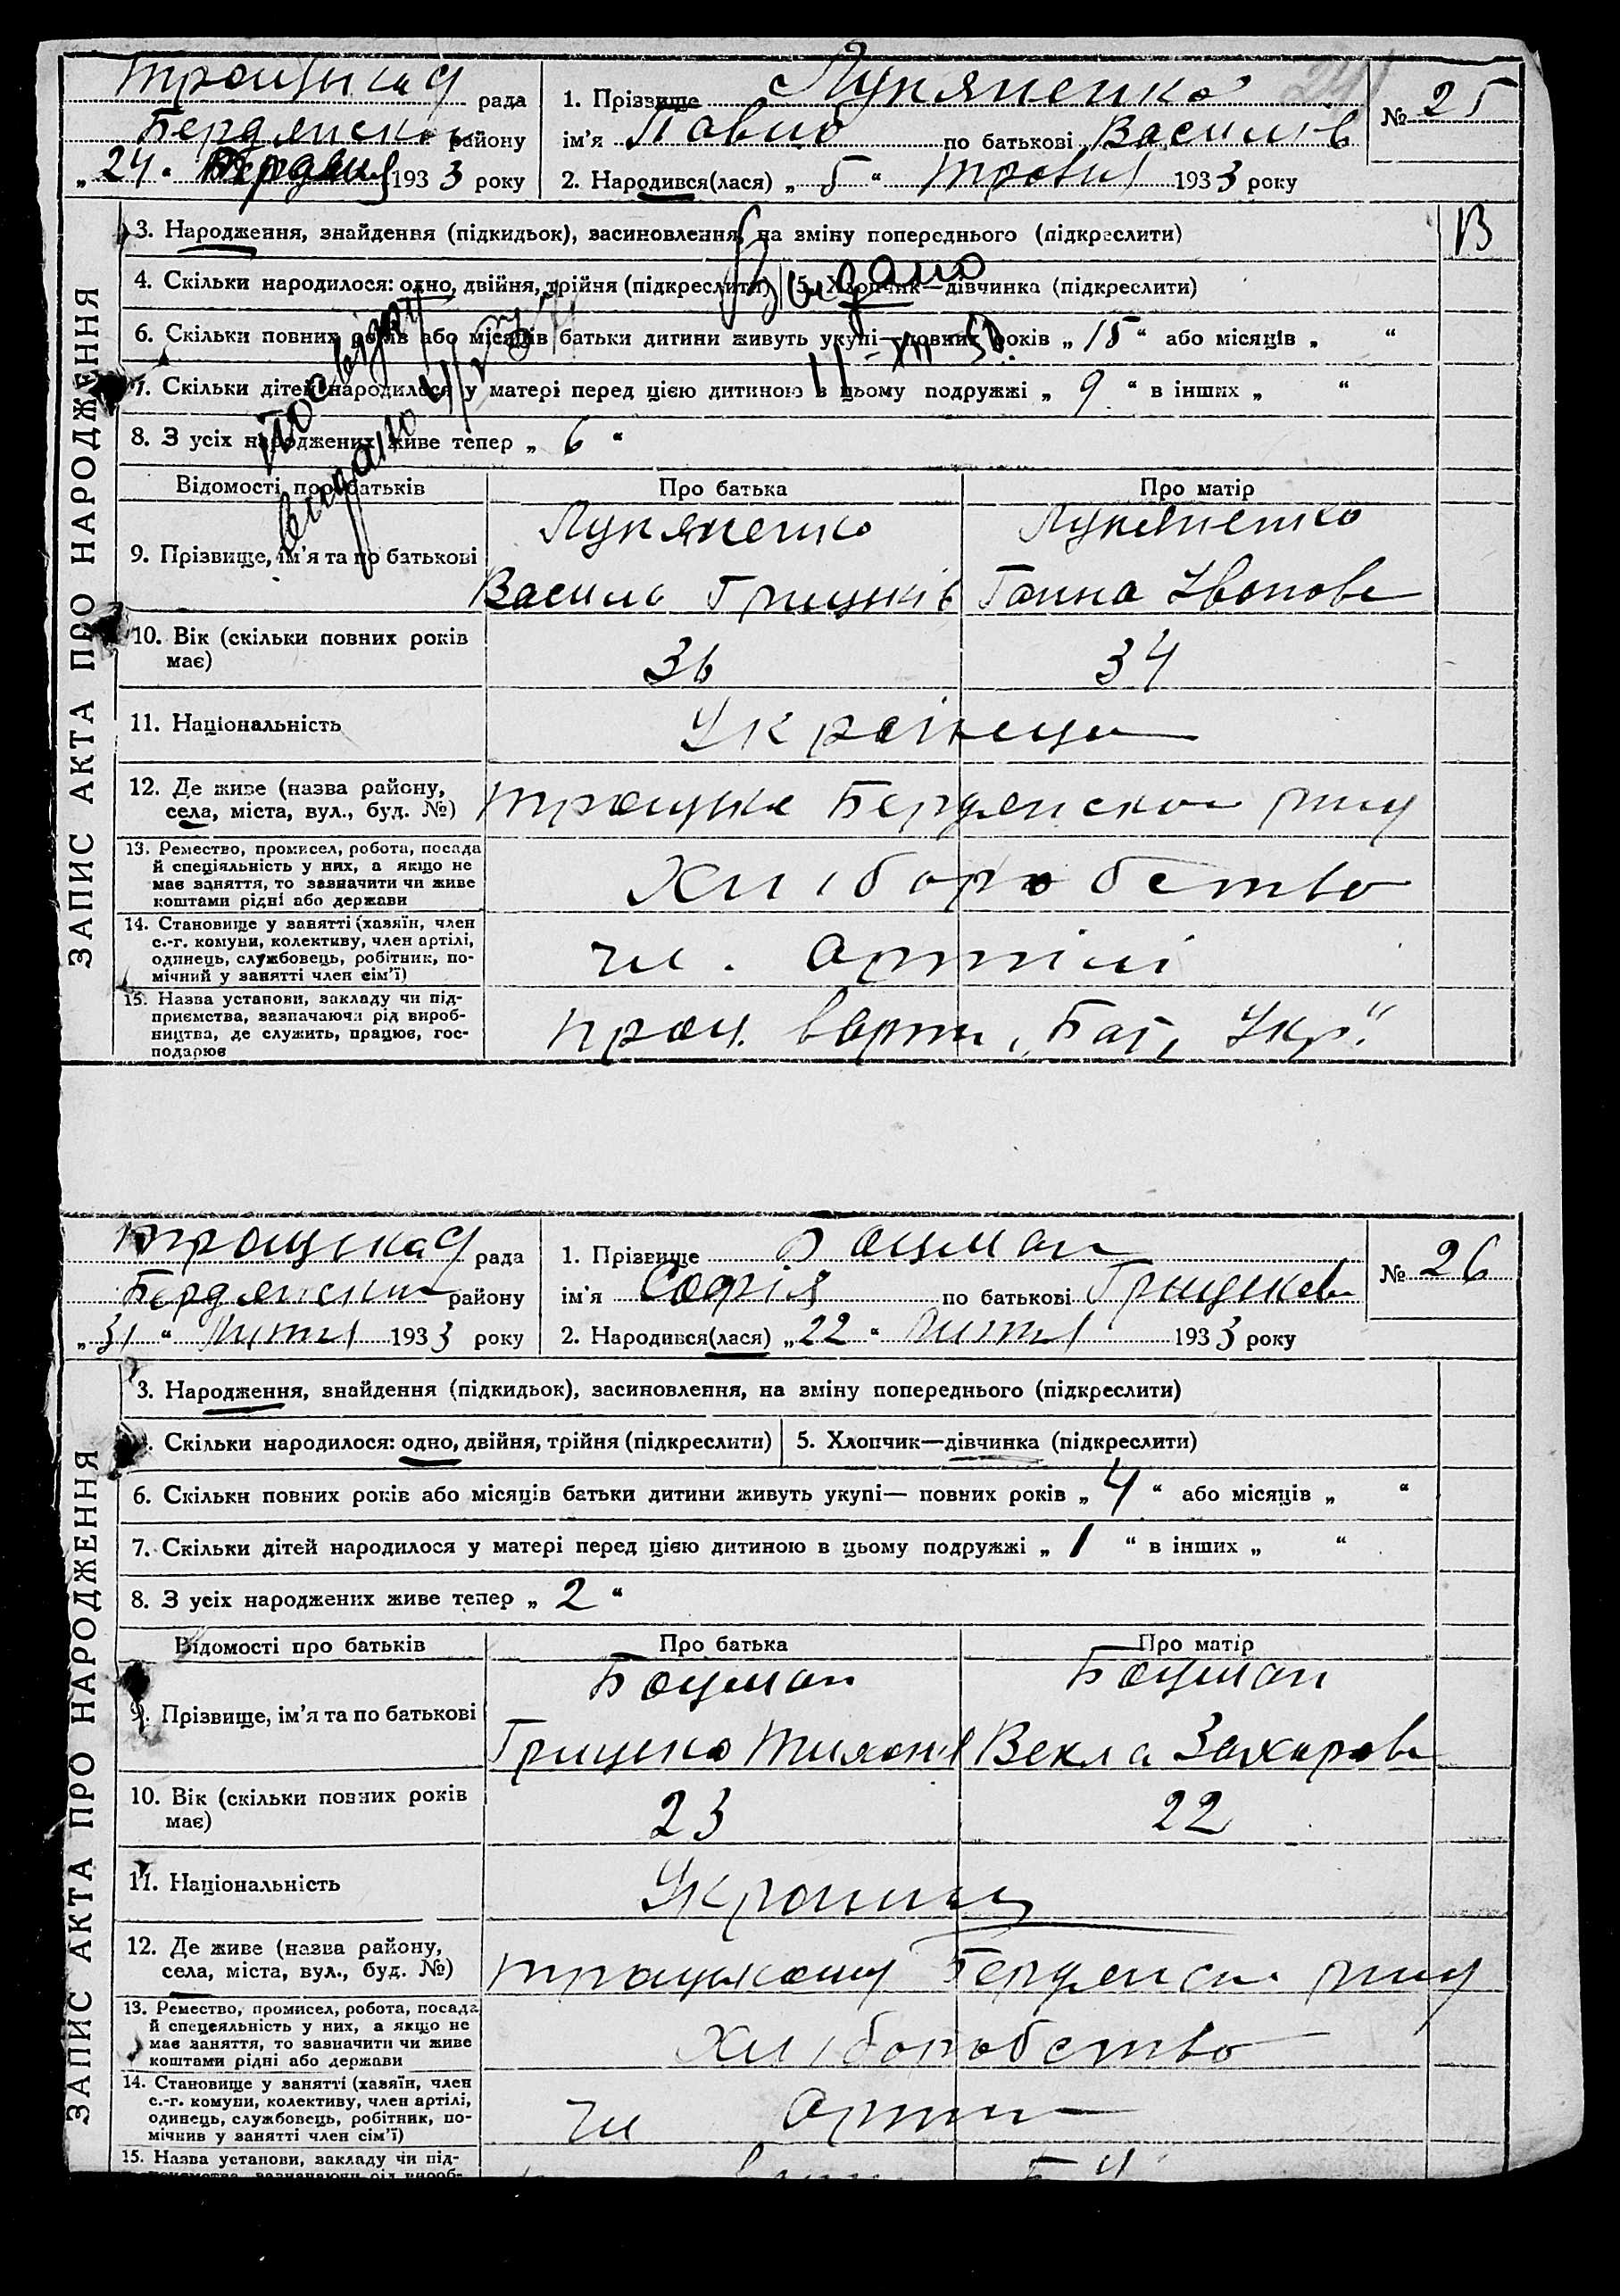 Троцька рада
Бердянськ району
„24“ 1933 року
1. Прізвище Лукяненко
ім'я Павло по батькові Василів
2. Народився(лася) „5“ травня 1933 року
№ 25
ЗАПИС АКТА ПРО НАРОДЖЕННЯ
3. Народження, знайдення (підкидьок), засиновлення, на зміну попереднього (підкреслити)
В
4. Скільки народилося: одно, двійня, трійня (підкреслити) 5. Хлопчик—дівчинка (підкреслити)
Видано
6. Скільки повних років або місяців батьки дитини живуть укупі—повних років „15“ або місяців „ “
7. Скільки дітей народилося у матері перед цією дитиною в цьому подружжі „9“ в інших „ “
8. З усіх народжених живе тепер „6“
видано
Відомості про батьків Про батька Про матір
Лукяненко Лукяненко
9. Прізвище, ім'я та по батькові
Василь Грицьків Ганна Іванова
10. Вік (скільки повних років має) 36 34
11. Національність Українці
12. Де живе (назва району,
села, міста, вул., буд. №) Троцьке Бердянськ
13. Ремество, промисел, робота, посада
й спеціяльність у них, а якщо не
має заняття, то зазначити чи живе
коштами рідні або держави
Хліборобство
14. Становище у занятті (хазяїн, член
с.-г. комуни, колективу, член артілі,
одинець, службовець, робітник, по-
мічний у занятті член сім'ї)
чл. артілі
15. Назва установи, закладу чи під-
приємства, зазначаючи рід вироб-
ництва, де служить, працює, гос-
подарює
прац. в арт. Укр."
Троцька рада
Бердянськ району
„31“ липня 1933 року
1. Прізвище Боцман
ім'я Софія по батькові Грицькова
2. Народився(лася) „22“ липня 1933 року
№ 26
ЗАПИС АКТА ПРО НАРОДЖЕННЯ
3. Народження, знайдення (підкидьок), засиновлення, на зміну попереднього (підкреслити)
4. Скільки народилося: одно, двійня, трійня (підкреслити) 5. Хлопчик—дівчинка (підкреслити)
6. Скільки повних років або місяців батьки дитини живуть укупі— повних років „4“ або місяців „ “
7. Скільки дітей народилося у матері перед цією дитиною в цьому подружжі „1“ в інших „ “
8. З усіх народжених живе тепер „2“
Відомості про батьків Про батька Про матір
Боцман Боцман
9. Прізвище, ім'я та по батькові
Грицько Векла Захарова
10. Вік (скільки повних років має) 23 22
11. Національність Українці
12. Де живе (назва району,
села, міста, вул., буд. №) Бердянськ
13. Ремество, промисел, робота, посада
й спецеяльність у них, а якщо не
має заняття, то зазначити чи живе
коштами рідні або держави
Хліборобство
14. Становище у занятті (хазяїн, член
с.-г. комуни, колективу, член артілі,
одинець, службовець, робітник, по-
мічнив у занятті член сім'ї)
чл артілі
15. Назва установи, закладу чи під-
приємства, зазначаючи рід вироб-